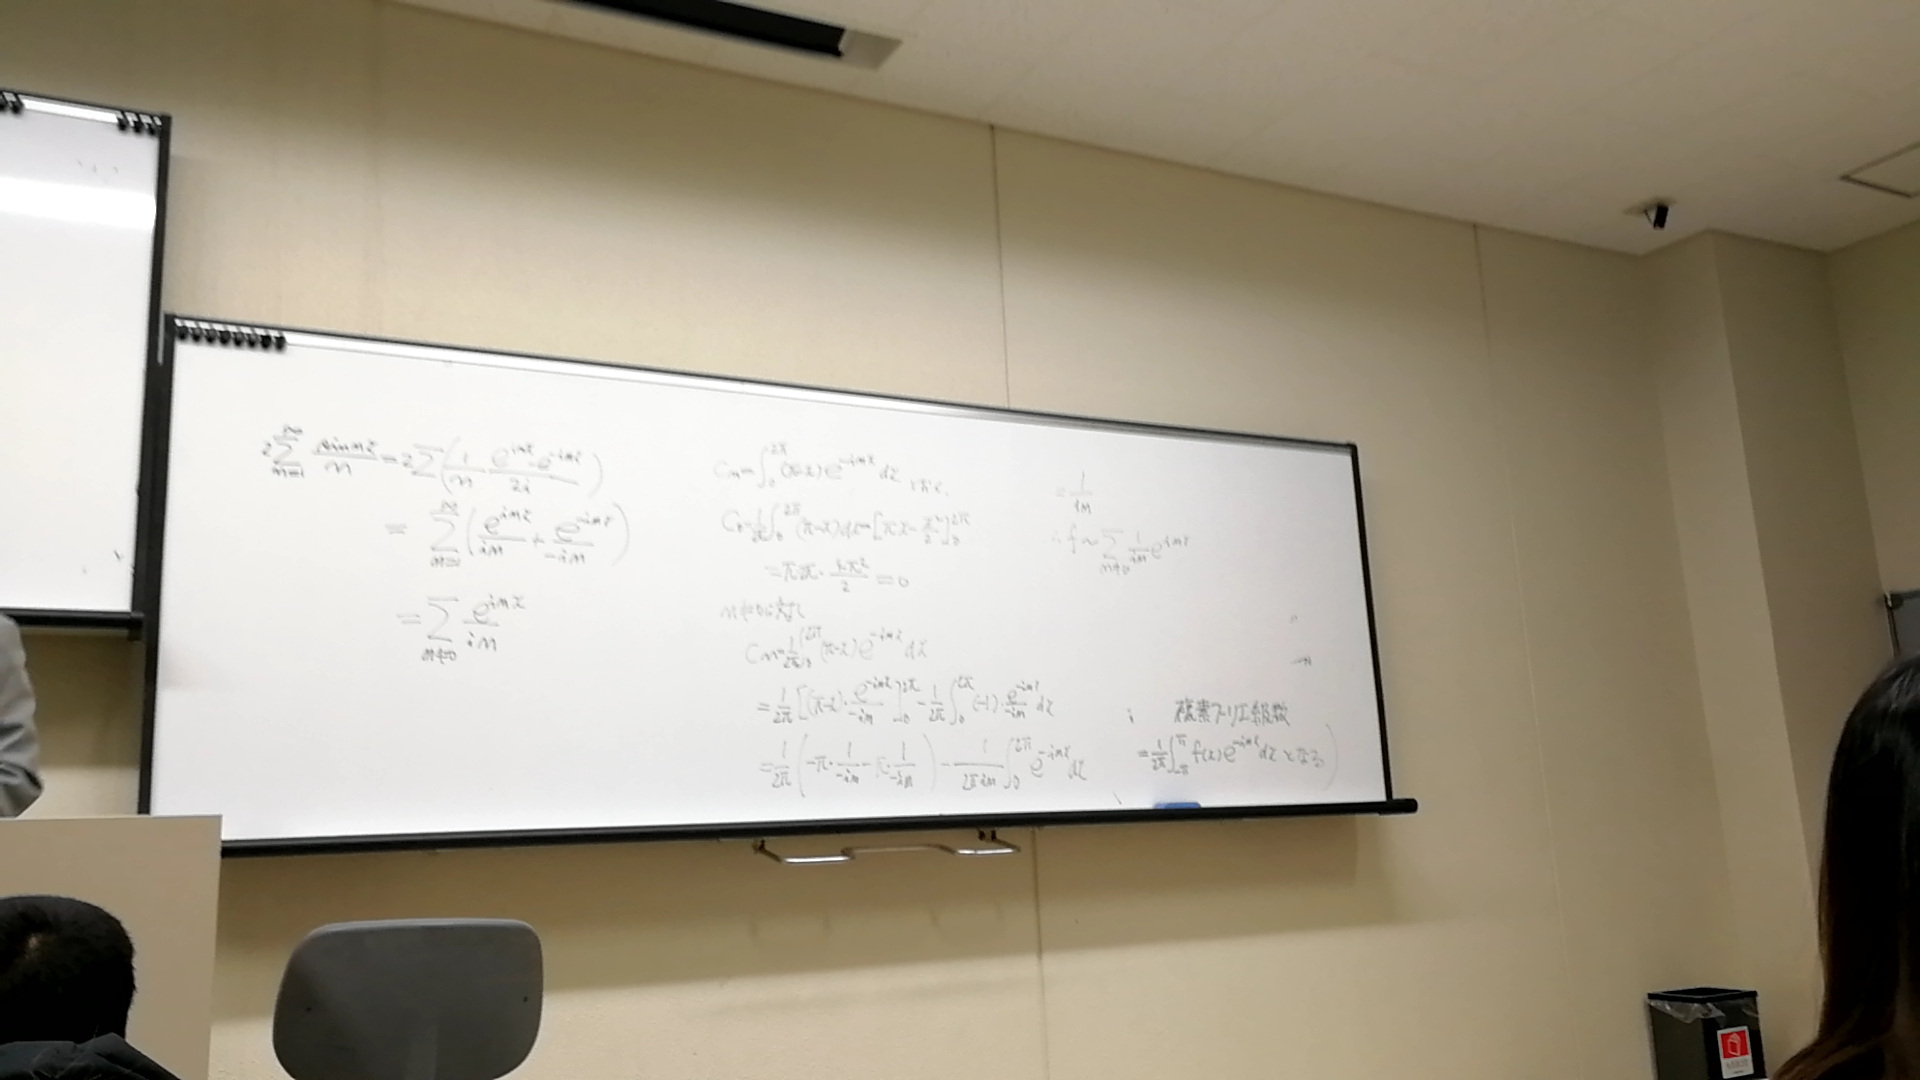 2∑_{n=1}^{∞} sin nx / n = 2∑(1/n · (e^{inx} - e^{-inx}) / 2i)
= ∑_{n=1}^{∞} (e^{inx} / in + e^{-inx} / -in)
= ∑_{n≠0} e^{inx} / in
C_n = ∫_0^{2π} (π-x) e^{-inx} dx とおく.
C_0 = 1/2π ∫_0^{2π} (π-x) dx = [πx - x²/2]_0^{2π}
= π·2π - 4π²/2 = 0
n≠0に対し
C_n = 1/2π ∫_0^{2π} (π-x) e^{-inx} dx
= 1/2π [(π-x)· e^{-inx} / -in]_0^{2π} - 1/2π ∫_0^{2π} (-1)· e^{-inx} / -in dx
= 1/2π (-π· 1/-in - π· 1/-in) - 1/2πin ∫_0^{2π} e^{-inx} dx
= 1/in
∴ f ~ ∑_{n≠0} 1/in e^{inx}
複素フーリエ級数
= 1/2π ∫_{-π}^{π} f(x) e^{-inx} dx となる)